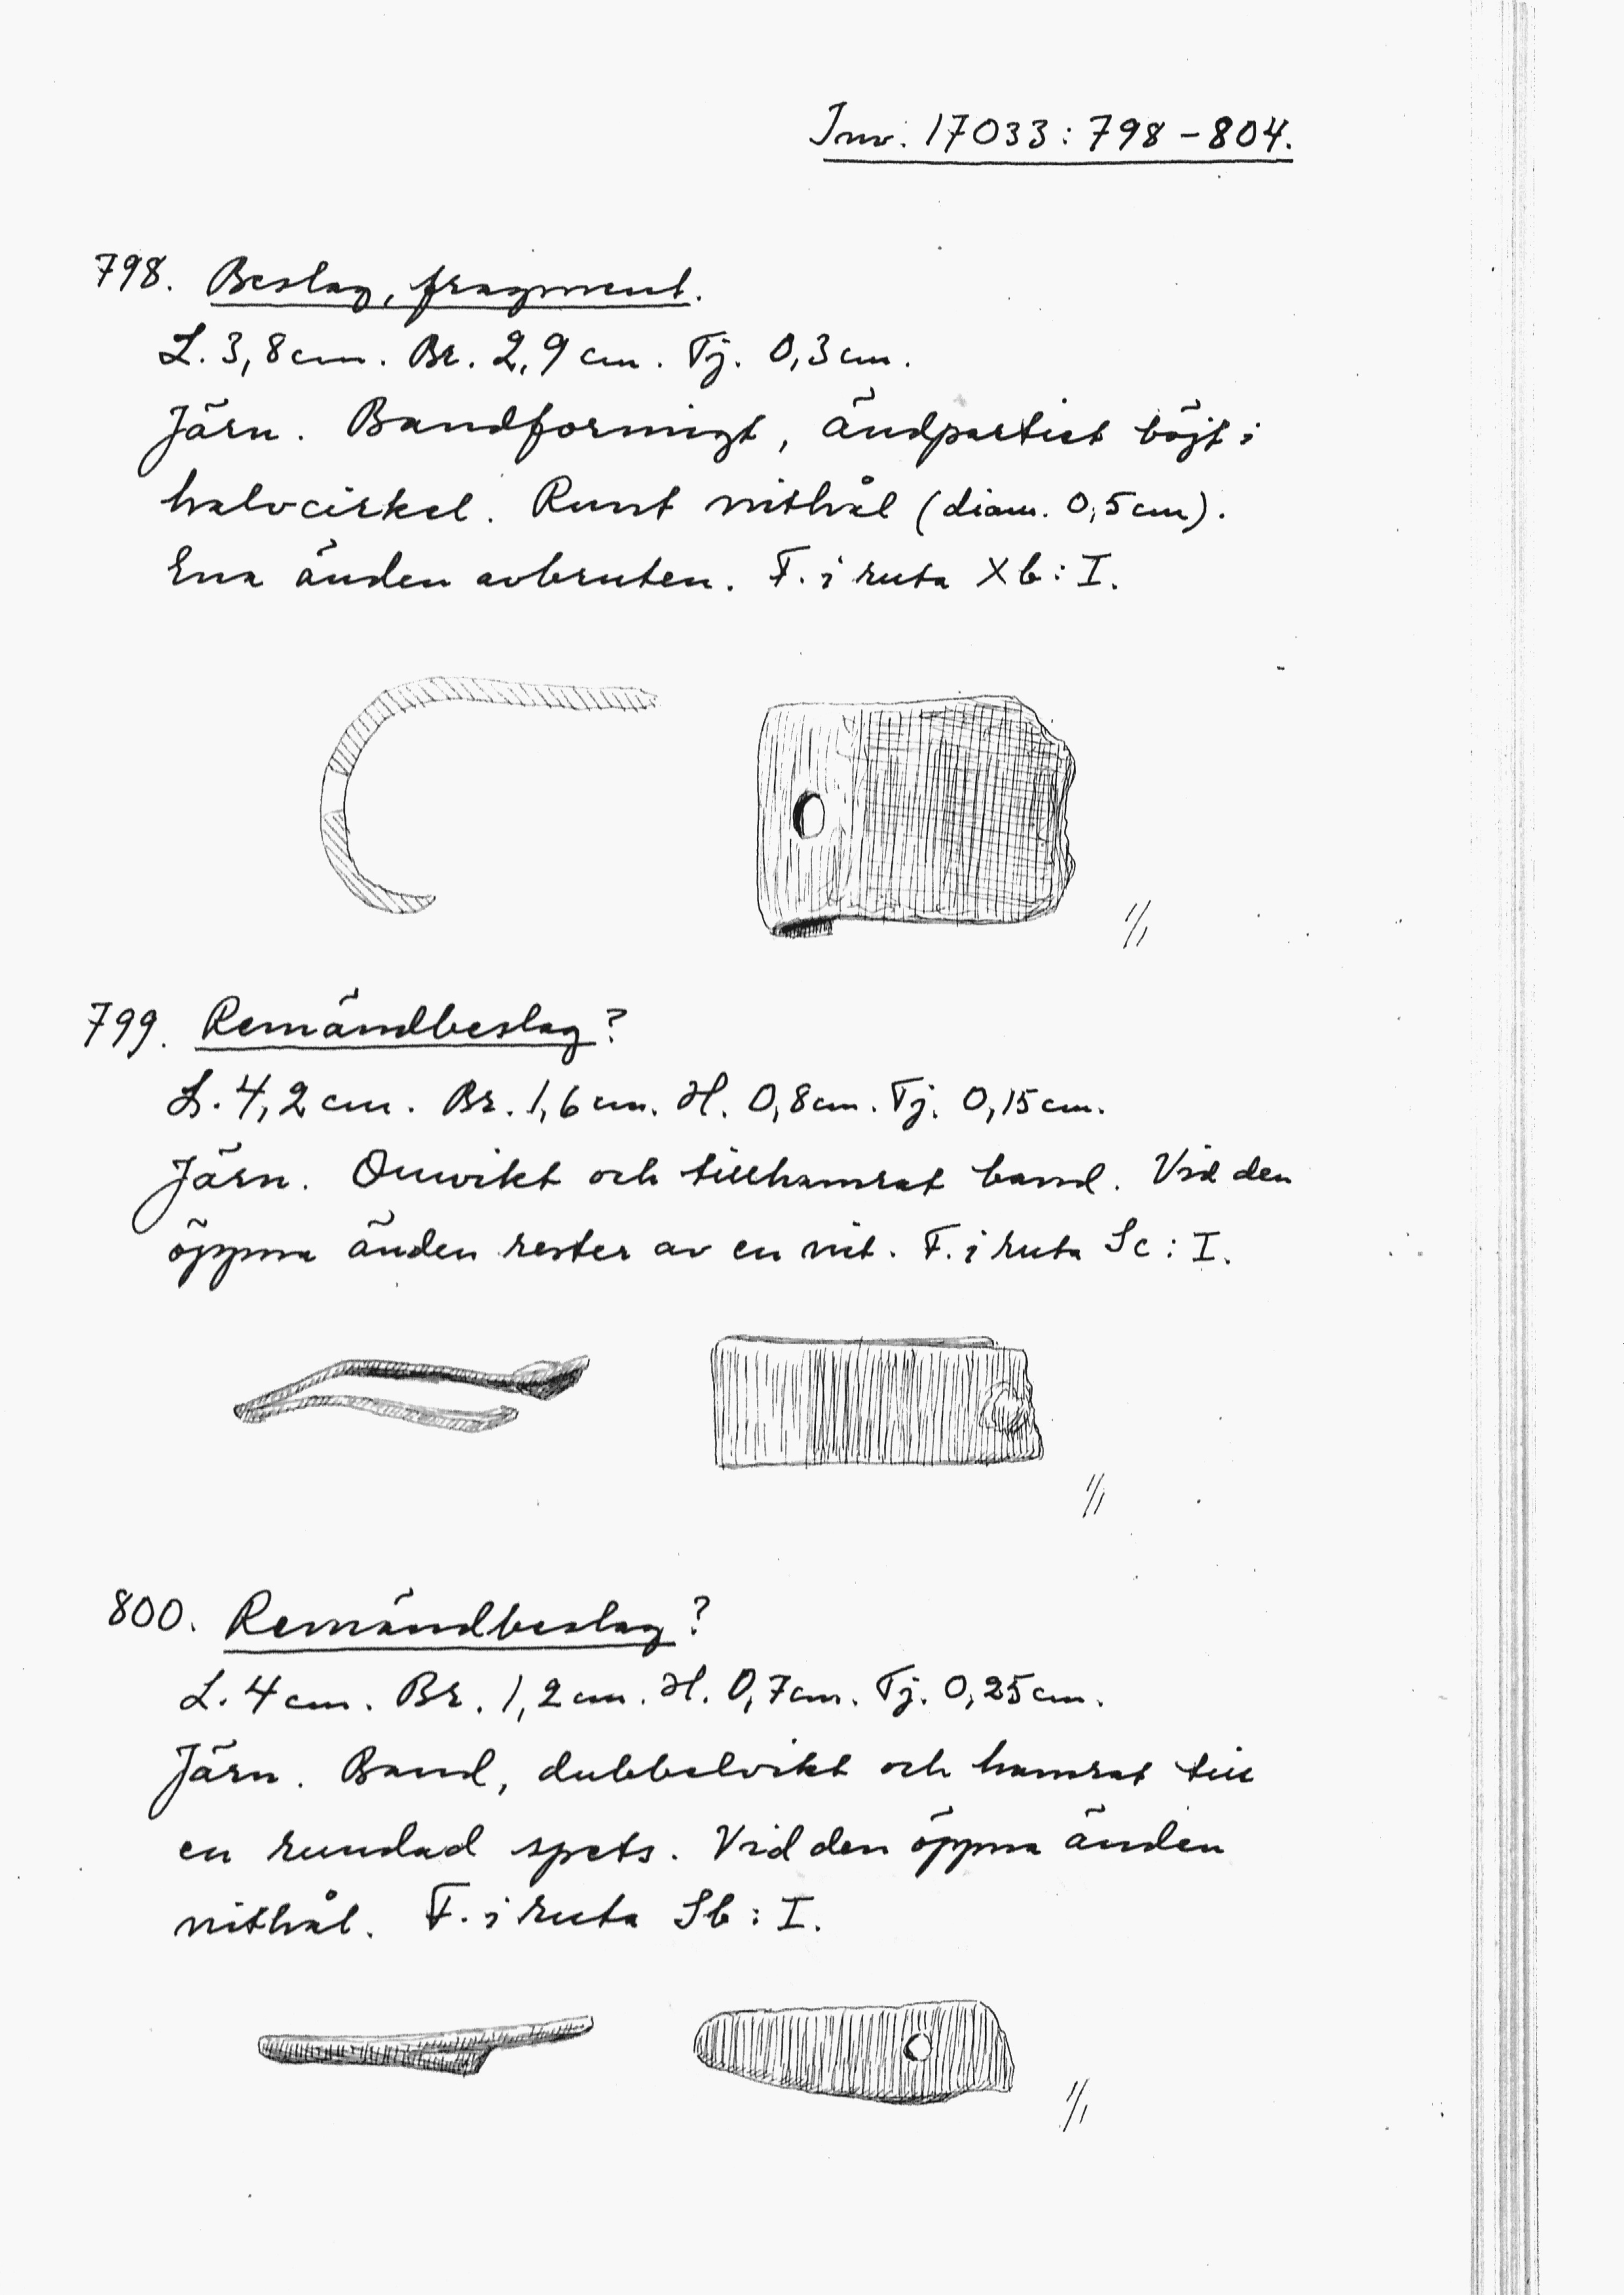 Inv. 17033: 798-804.
798. Beslag, fragment.
L. 3,8 cm. Br. 2,9 cm. Tj. 0,3 cm.
Järn. Bandformigt, ändpartiet böjt i
halvcirkel. Runt nithål (diam. 0,5 cm).
Ena änden avbruten. F. i ruta Xb: I.
1/1
799. Remändbeslag?
L. 4,2 cm. Br. 1,6 cm. H. 0,8 cm. Tj. 0,15 cm.
Järn. Omvikt och tillhamrat band. Vid den
öppna änden rester av en nit. F. i ruta Sc: I.
1/1
800. Remändbeslag?
L. 4 cm. Br. 1,2 cm. H. 0,7 cm. Tj. 0,25 cm.
Järn. Band, dubbelvikt och hamrat till
en rundad spets. Vid den öppna änden
nithål. F. i ruta Sb: I.
1/1